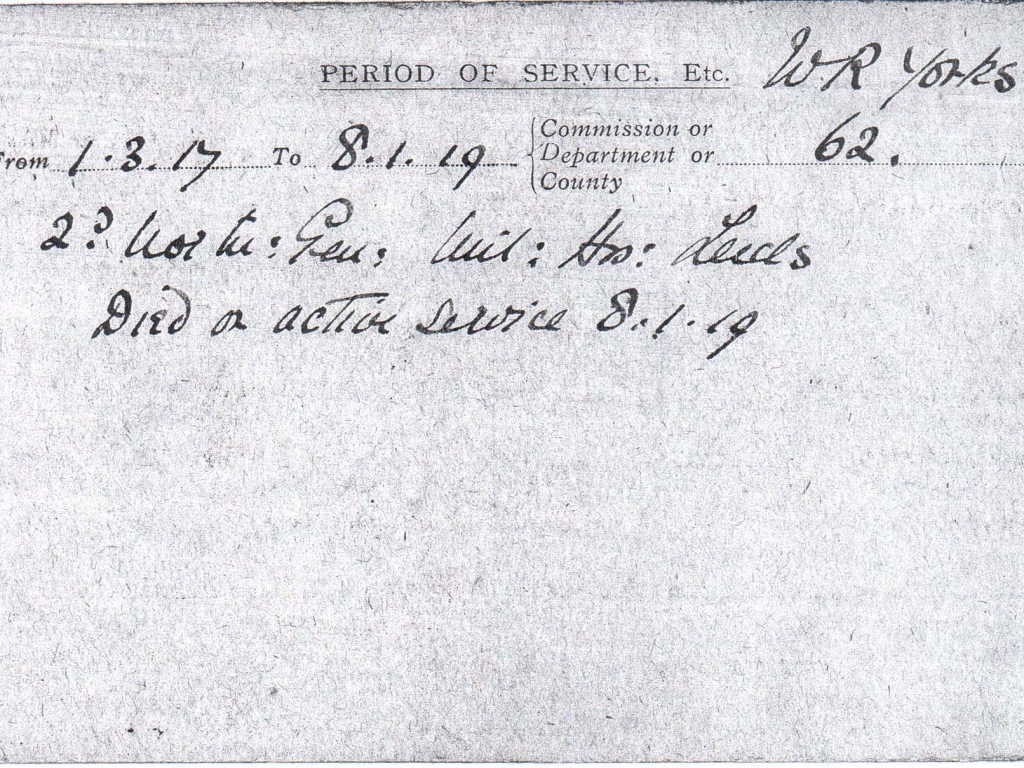 PERIOD OF SERVICE, Etc. WR Yorks
From 1.3.17 To 8.1.19 {Commission or Department or County 62.
2d North: Gen: Mil: Hos: Leeds
Died on active service 8.1.19